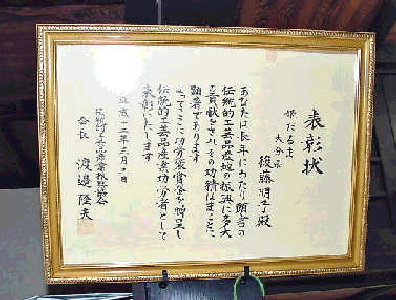 表彰状
姫だるま
大分県
後藤明子殿
あなたは長年にわたり頭書の
伝統的工芸品産地の振興に多大
な貢献をされその功績はまことに
顕著であります
よってここに功労褒賞金を贈呈し
伝統的工芸品産業功労者として
表彰いたします
平成十三年三月 日
伝統的工芸品産業振興協会
会長 渡邊隆夫